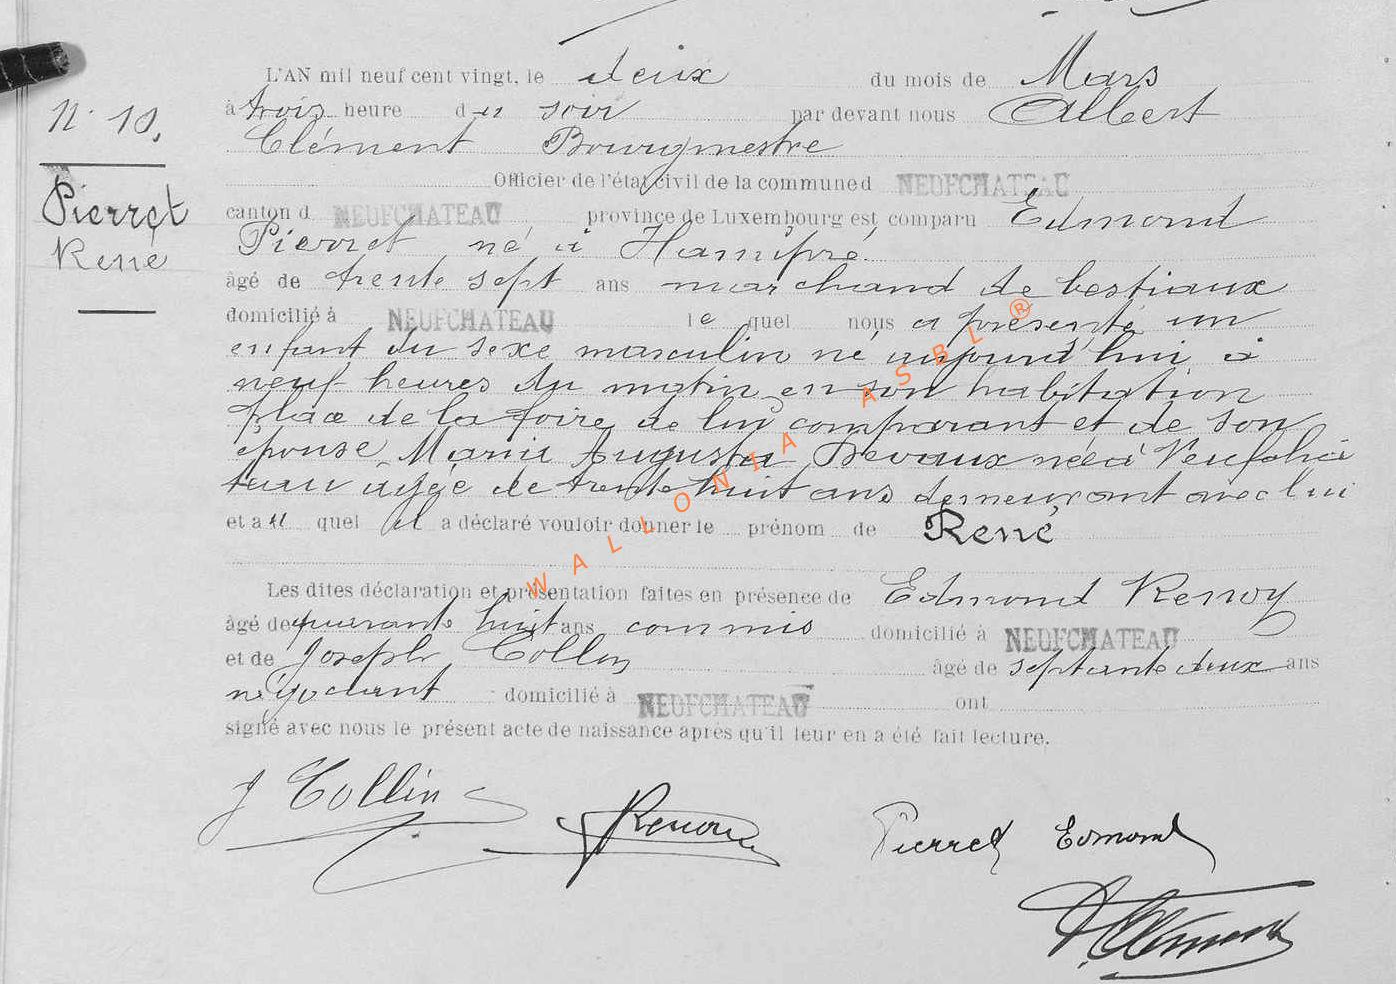 L'AN mil neuf cent vingt, le deux du mois de Mars
N° 10.
à trois heure du soir par devant nous Albert
Clément Bourgmestre
Officier de l'état civil de la commune d NEUFCHATEAU
Pierret
René
canton d NEUFCHATEAU province de Luxembourg est comparu Edmond
Pierret né à Hamipré
âgé de trente sept ans marchand de bestiaux
domicilié à NEUFCHATEAU le quel nous a présenté un
enfant du sexe masculin né aujourd'hui à
neuf heures du matin en son habitation
place de la foire, de lui comparant et de son
épouse Maria Augusta Devaux née à Neufchâ
teau âgée de trente huit ans demeurant avec lui
et au quel il a déclaré vouloir donner le prénom de René
Les dites déclaration et présentation faites en présence de Edmond
âgé de quarante huit ans commis domicilié à NEUFCHATEAU
et de Joseph Collin âgé de septante deux ans
négociant domicilié à NEUFCHATEAU ont
signé avec nous le présent acte de naissance après qu'il leur en a été fait lecture.
J Collin
Pierret Edmond
A Clément
WALLONIA ASBL ®